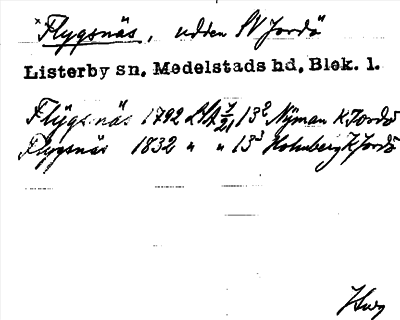 *Flygsnäs, udden SV Jordö
Listerby sn. Medelstads hd, Blek. l.
Flÿgsnäs 1792 LSA 7/21 13² Nÿman K Jordö
Flygsnäs 1832 " " 13³ Holmberg K Jordö